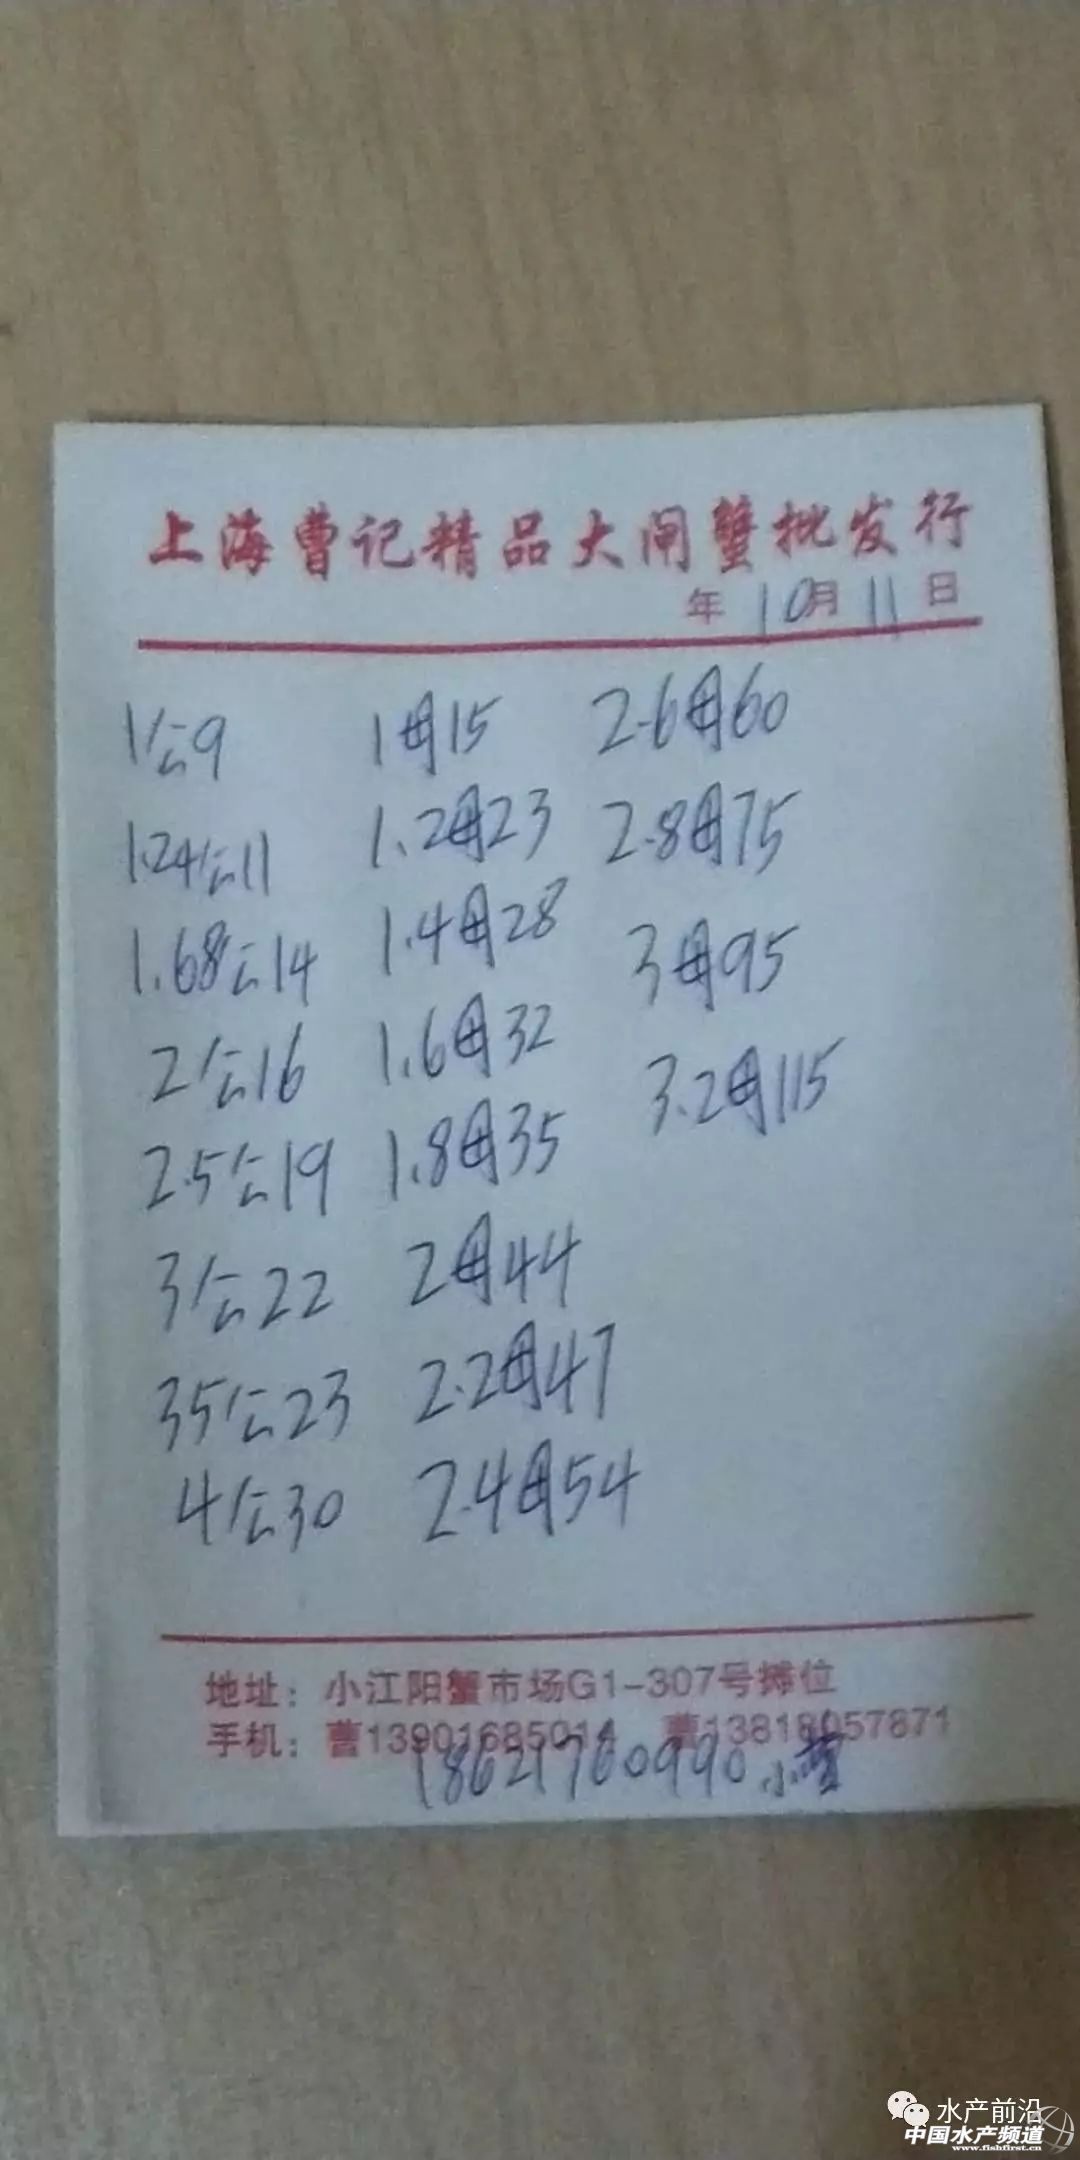 上海曹记精品大闸蟹批发行
年 10月 11 日
1公9 1母15 2.6母60
1.24公11 1.2母23 2.8母75
1.68公14 1.4母28 3母95
2公16 1.6母32 3.2母115
2.5公19 1.8母35
3公22 2母44
35公23 2.2母47
4公30 2.4母54
地址：小江阳蟹市场G1-307号摊位
手机：曹13901685014 曹13818057871
18621760990 小曹
水产前沿
中国水产频道
www.fishfirst.cn